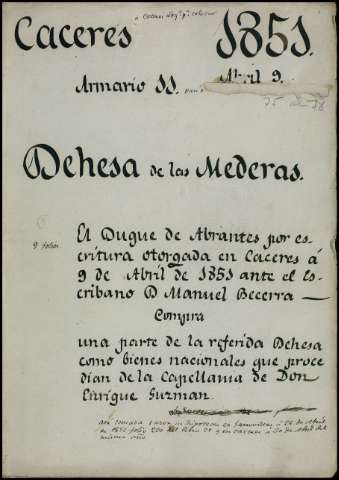 Caceres 1851.
Armario 11. Abril 9.
Dehesa de las Mederas.
9 folios
El Duque de Abrantes por es-
critura otorgada en Caceres á
9 de Abril de 1851 ante el Es-
cribano D Manuel Becerra —
Compra
una parte de la referida Dehesa
como bienes nacionales que proce
dian de la Capellania de Don
Enrique Guzman.